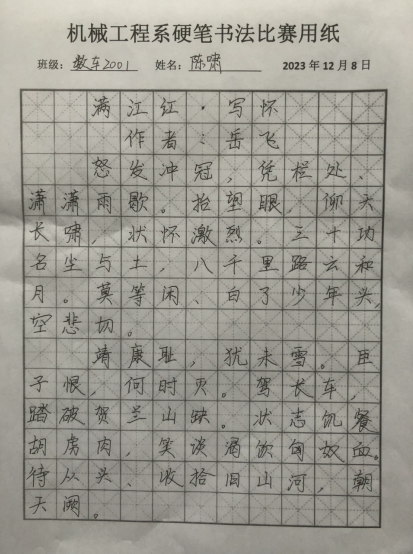 机械工程系硬笔书法比赛用纸
班级：数车2001 姓名：陈啸 2023年12月8日
满江红·写怀
作者：岳飞
怒发冲冠，凭栏处、
潇潇雨歇。抬望眼，仰天
长啸，状怀激烈。三十功
名尘与土，八千里路云和
月。莫等闲、白了少年头，
空悲切。
靖康耻，犹未雪。臣
子恨，何时灭。驾长车，
踏破贺兰山缺。状志饥餐
胡虏肉，笑谈渴饮匈奴血。
待从头、收拾旧山河，朝
天阙。